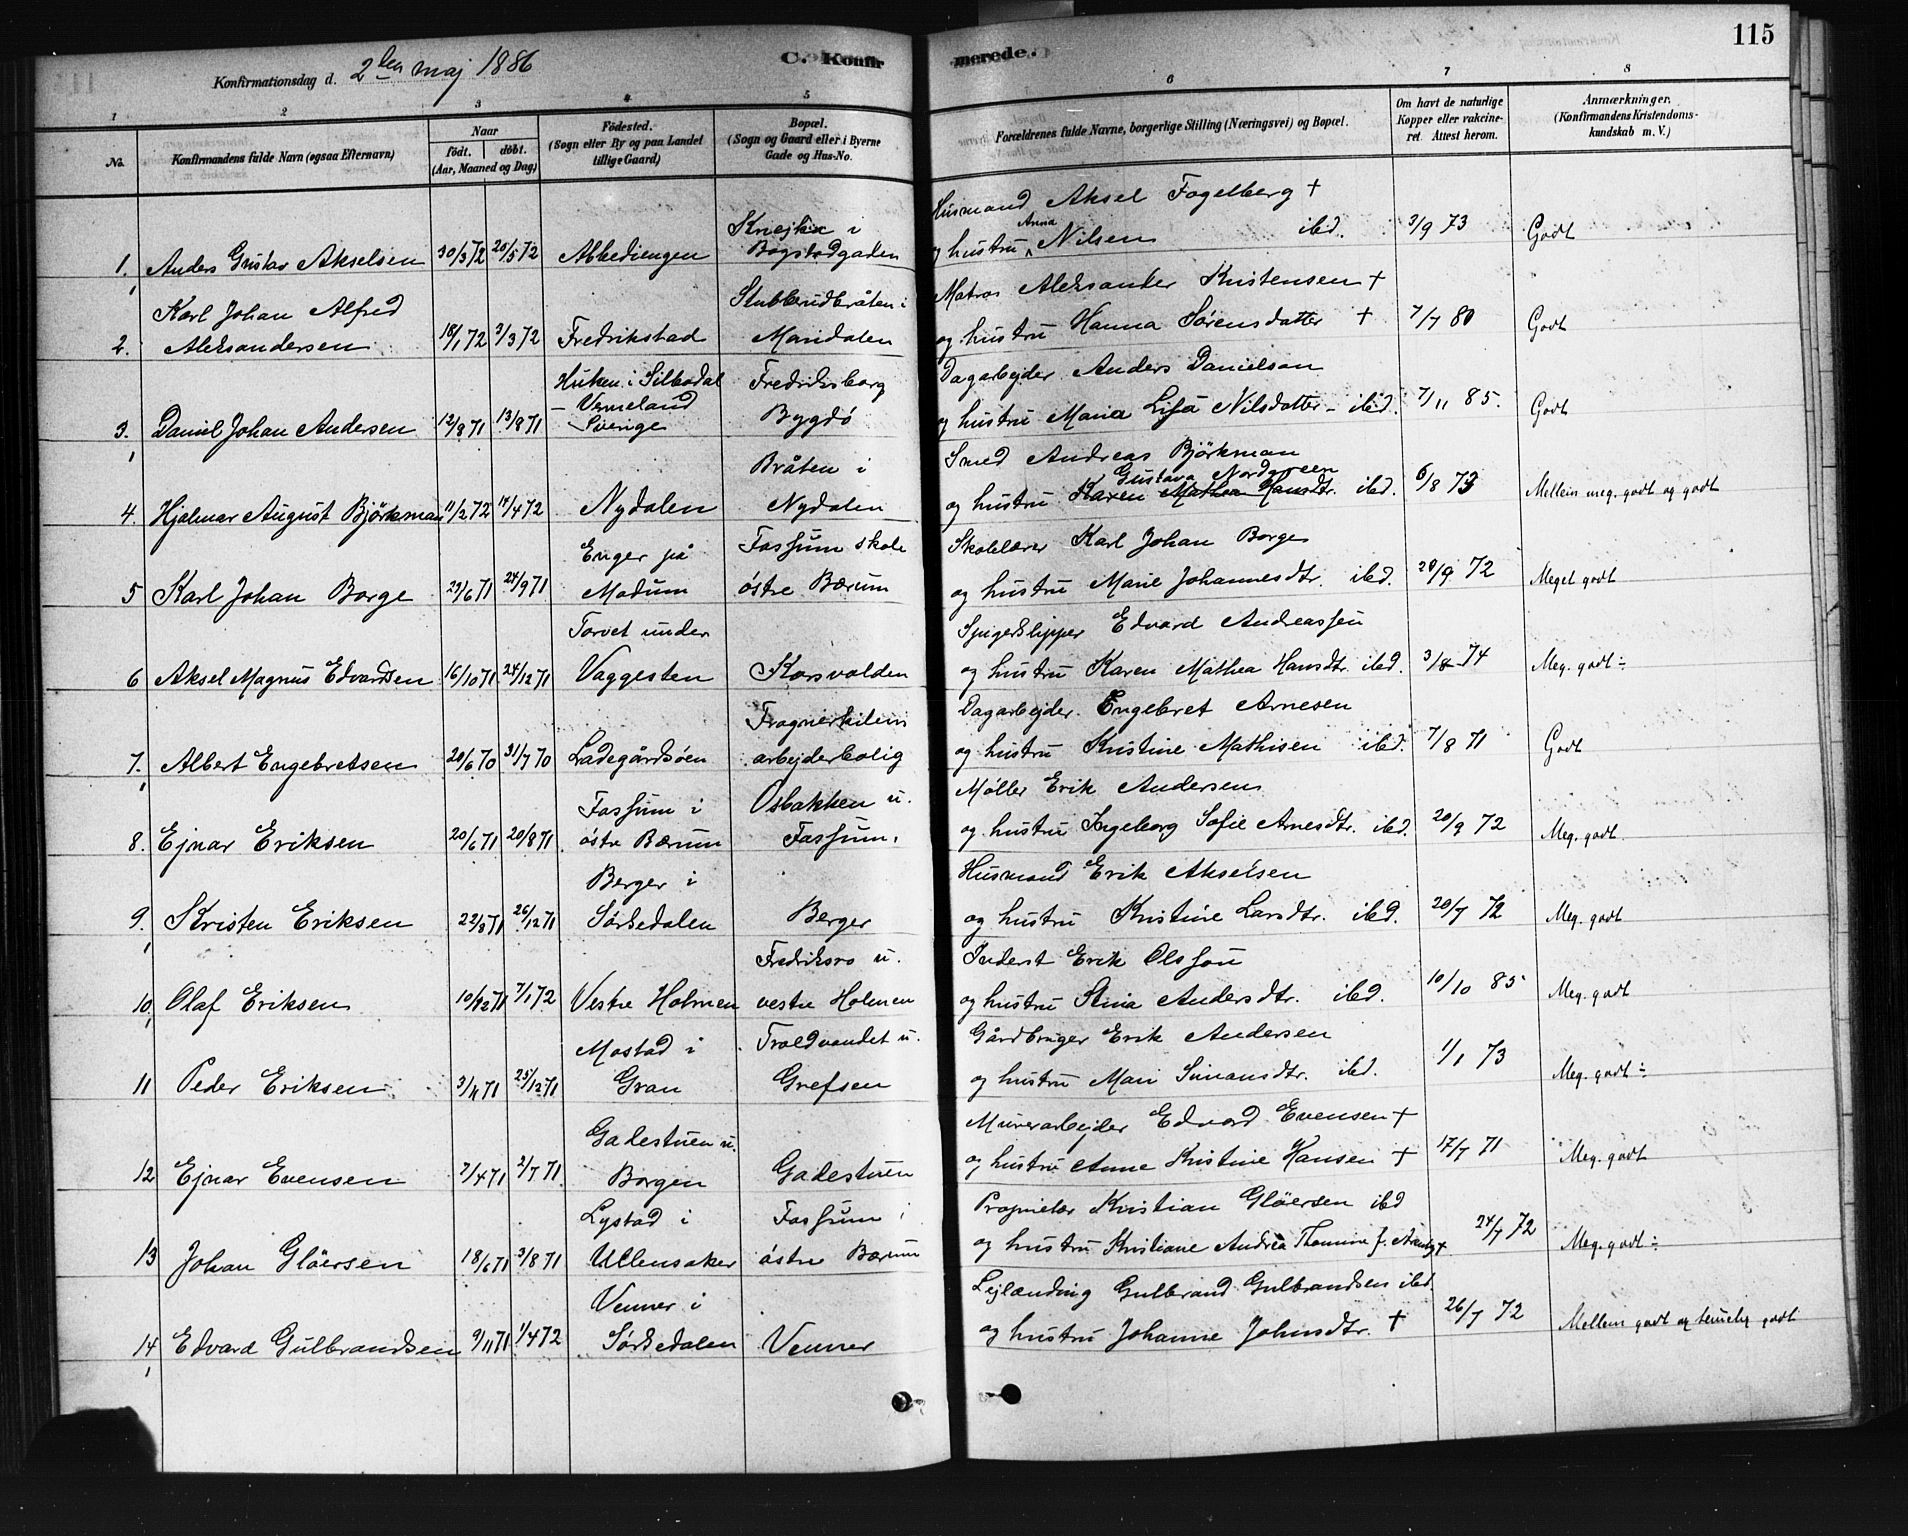 115
Konfirmationsdag d. 2den maj 1886
C. Konfirmerede.
1 2 3 4 5 6 7 8
No.
Konfirmandens fulde Navn (ogsaa Efternavn)
Naar
født. døbt.
(Aar, Maaned og Dag)
Fødested.
(Sogn eller By og paa Landet
tillige Gaard)
Bopæl.
(Sogn og Gaard eller i Byerne
Gade og Hus-No.
Forældrenes fulde Navne, borgerlige Stilling (Næringsvei) og Bopæl.
Om havt de naturlige
Kopper eller vakcine-
ret. Attest herom.
Anmærkninger.
(Konfirmandens Kristendoms-
kundskab m. V.)
Husmand Aksel Fogelberg +
Knejka i
1. Anders Gustav Akselsen 30/3 72 20/5 72 Abbediengen Bogstadgaden og hustru Anna Nilsen ibd. 3/9 73 Godt
Karl Johan Alfred Stubberudbråten i Matros Aleksander Kristensen +
2. Aleksandersen 18/1 72 3/3 72 Fredrikstad Maridalen og hustru Hanna Sørensdatter + 7/7 80 Godt
Huken i Silbodal Fredriksborg Dagarbejder Anders Danielson
- Vermeland
3. Daniel Johan Andersen 12/8 71 13/8 71 Sverige Bygdö og hustru Maria Lisa Nilsdatter - ibd. 7/11 85. Godt
Bråten i Smed Andreas Björkman
Gustava Nordgreen
4. Hjalmar August Björkman 11/2 72 14/4 72 Nydalen Nydalen og hustru Karen Mathea Hansdtr. ibd. 6/8 73 Mellem meg. godt og godt
Enger på Fossum skole Skolelærer Karl Johan Borge
5 Karl Johan Borge 23/6 71 24/9 71 Modum östre Bærum og hustru Marie Johannesdtr. ibd. 20/9 72 Meget godt
Torvet under Spigerklipper Edvard Andreassen
6 Aksel Magnus Edvardsen 16/10 71 24/12 71 Vaggesten Korsvolden og hustru Karen Mathea Hansdtr. ibd. 3/8 74 Meg. godt ÷
Frognerkilens Dagarbejder Engebret Arnesen
7. Albert Engebretsen 20/6 70 31/7 70 Ladegårdsöen arbejderbolig og hustru Kristine Mathisen ibd. 7/8 71 Godt
Fossum i Osbakken u. Møller Erik Andersen
8. Ejnar Eriksen 20/6 71 20/8 71 østre Bærum Fossum. og hustru Ingeborg Sofie Arnesdtr. ibd. 20/9 72 Meg. godt.
Berger i Husmand Erik Akselsen
9. Kristen Eriksen 22/8 71 26/12 71 Sørkedalen Berger og hustru Kristine Larsdtr. ibd. 20/7 72 Meg. godt
Fredriksro u. Inderst Erik Olsson
10. Olaf Eriksen 10/12 71 7/1 72 Vestre Holmen vestre Holmen og hustru Stina Andersdtr. ibd. 10/10 85 Meg. godt
Mostad i Troldvandet u. Gårdbruger Erik Andersen
11 Peder Eriksen 3/4 71 25/12 71 Gran Grefsen og hustru Mari Simansdtr. ibd. 1/1 73 Meg. godt ÷
Gadestuen u. Murerarbejder Edvard Evensen +
12 Ejnar Evensen 2/4 71 2/7 71 Borgen Gadestuen og hustru Anne Kristine Hansen + 17/7 71 Meg. godt
Lystad i Fossum i Proprietær Kristian Glöersen ibd
13 Johan Glöersen 18/6 71 3/8 71 Ullensaker östre Bærum og hustru Kristiane Andrea Thomine 24/7 72 Meg. godt ÷
Venner i Lejlænding Gulbrand Gulbrandsen ibd.
14 Edvard Gulbrandsen 9/11 71 1/4 72 Sørkedalen Venner og hustru Johanne Johnsdtr. + 26/7 72 Mellem godt og temelig godt